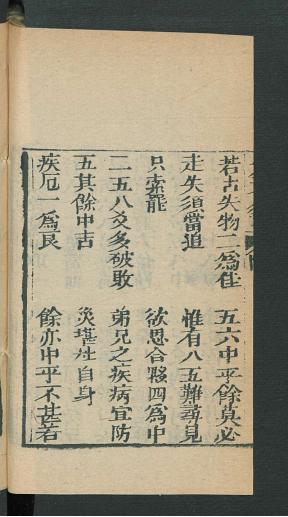 若占失物二為佳　五六中平餘莫必
走失須當追　惟有八五難尋見
只索罷　欲思合夥四為中
二五八爻多破敗　弟兄之疾病宜防
五其餘中吉　災堪姓自身
疾厄一為艮　餘亦中平不甚若